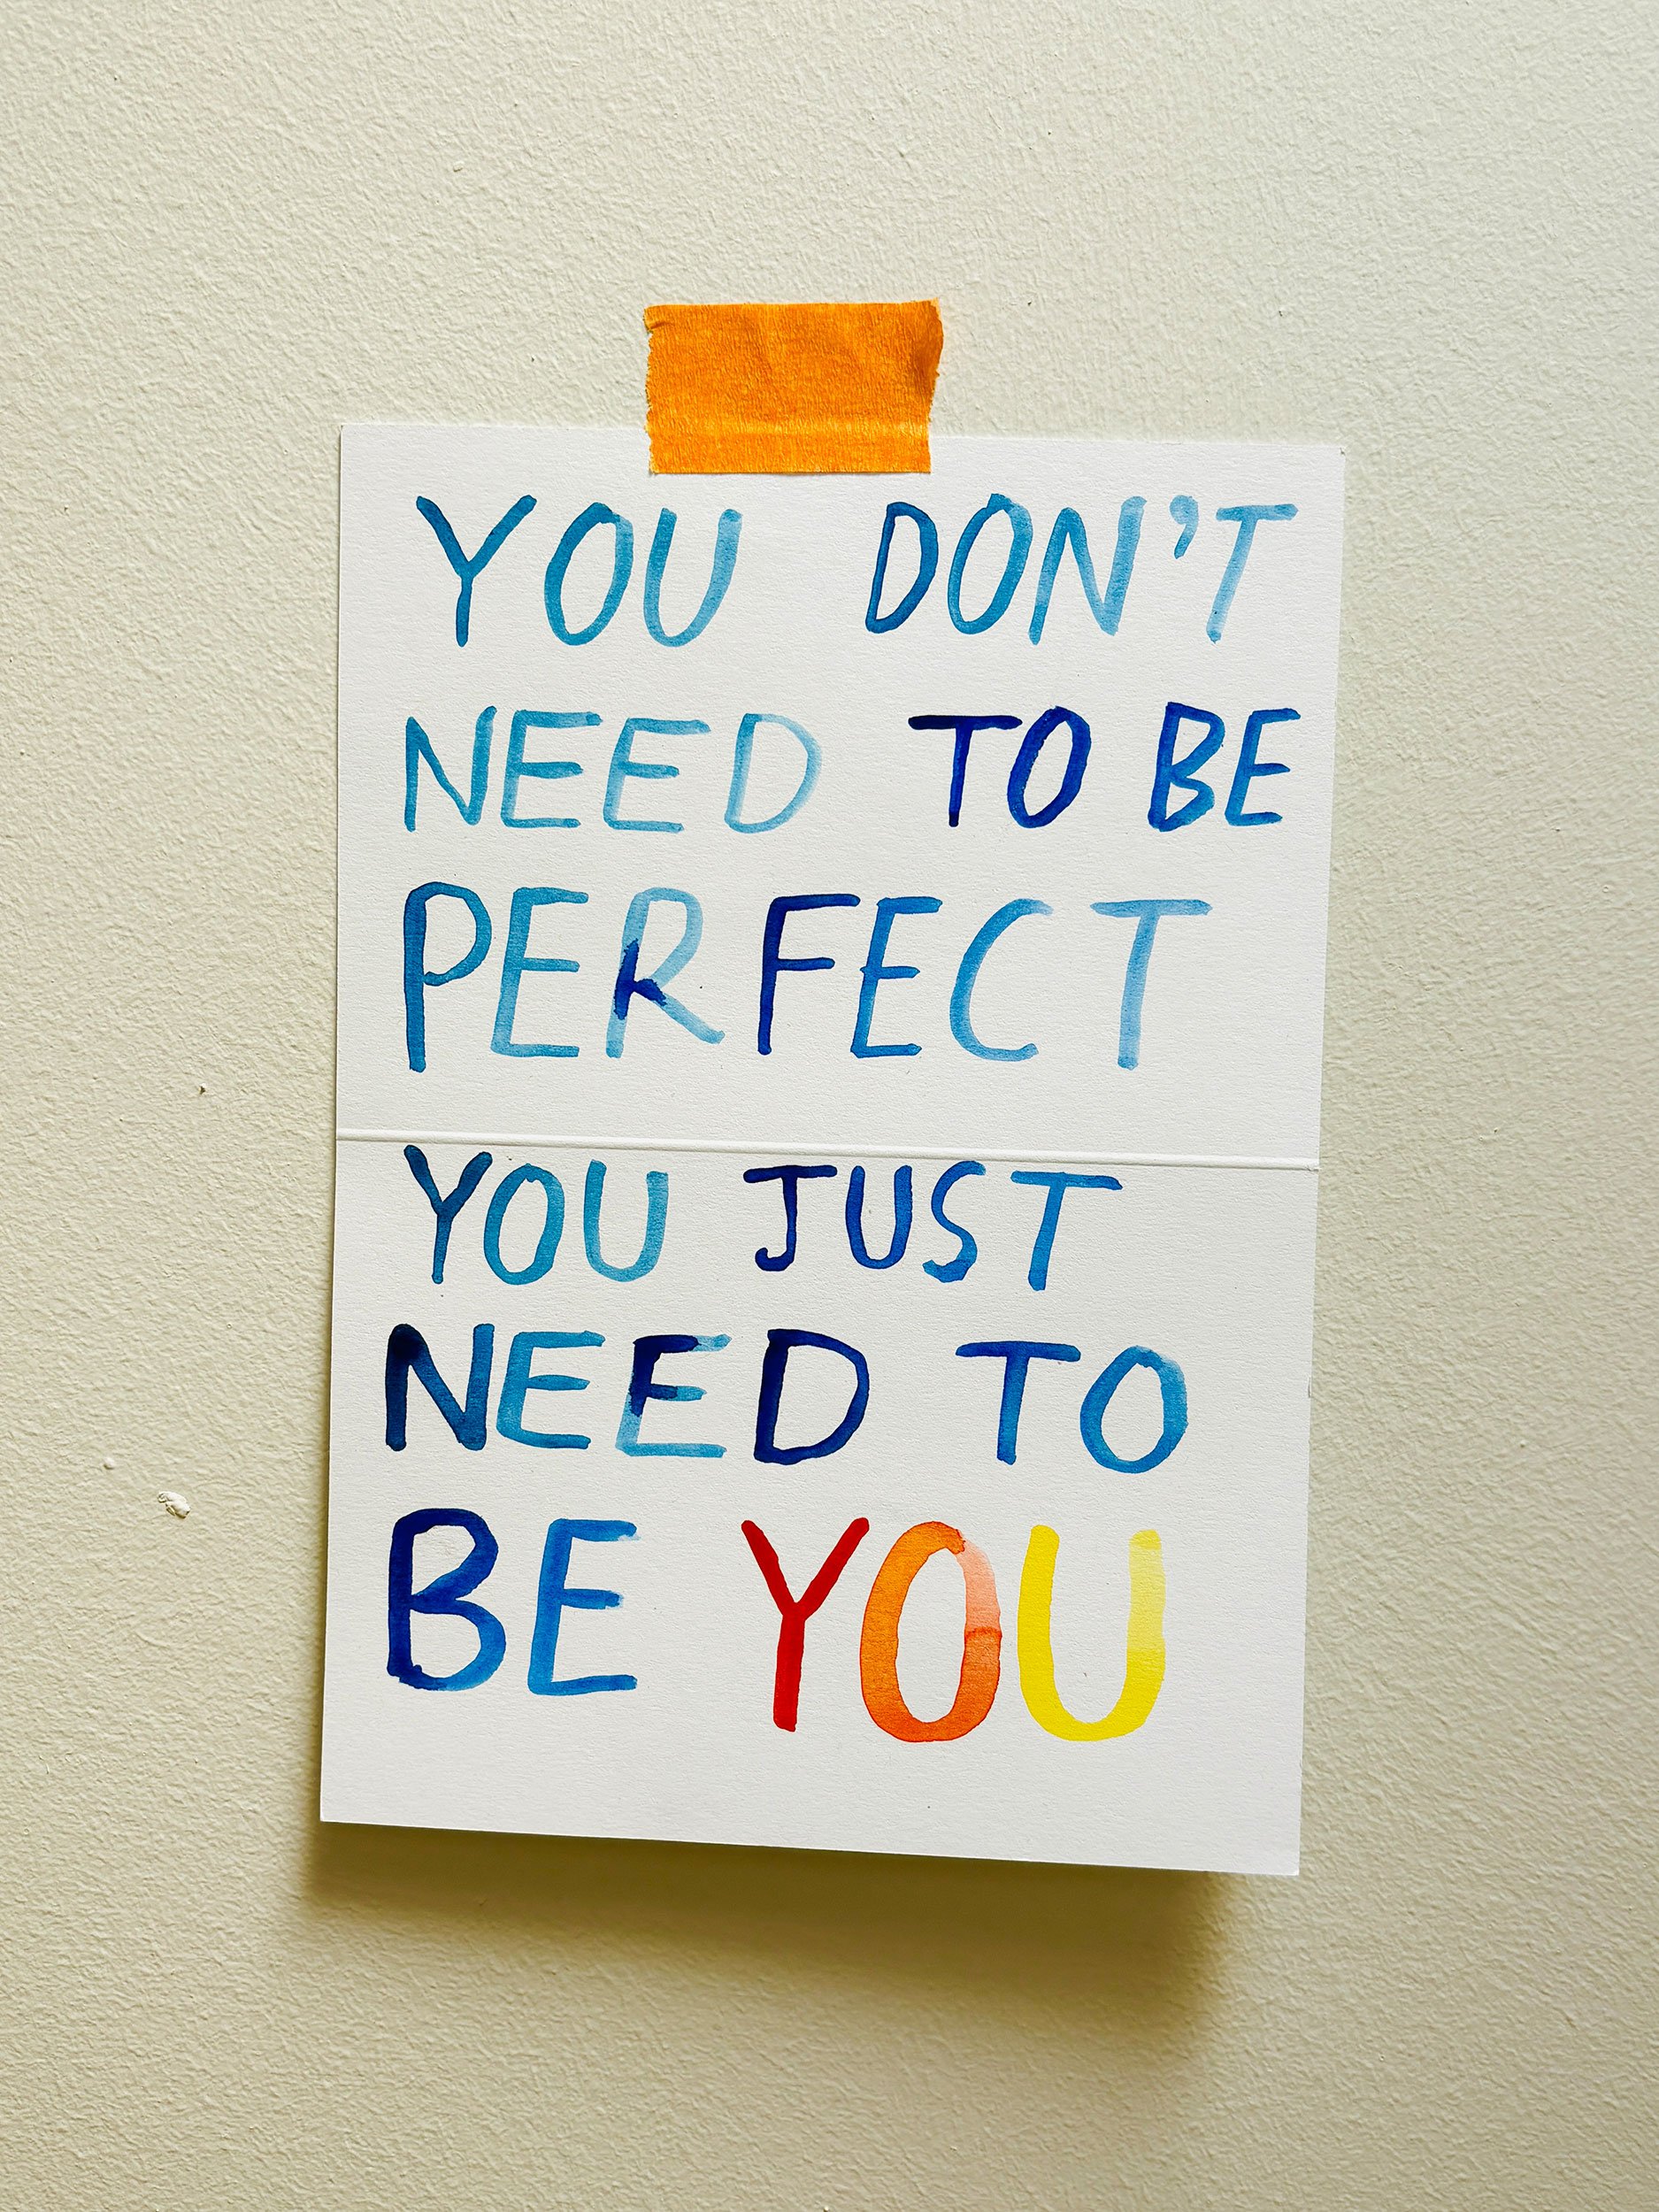 YOU DON'T
NEED TO BE
PERFECT
YOU JUST
NEED TO
BE YOU